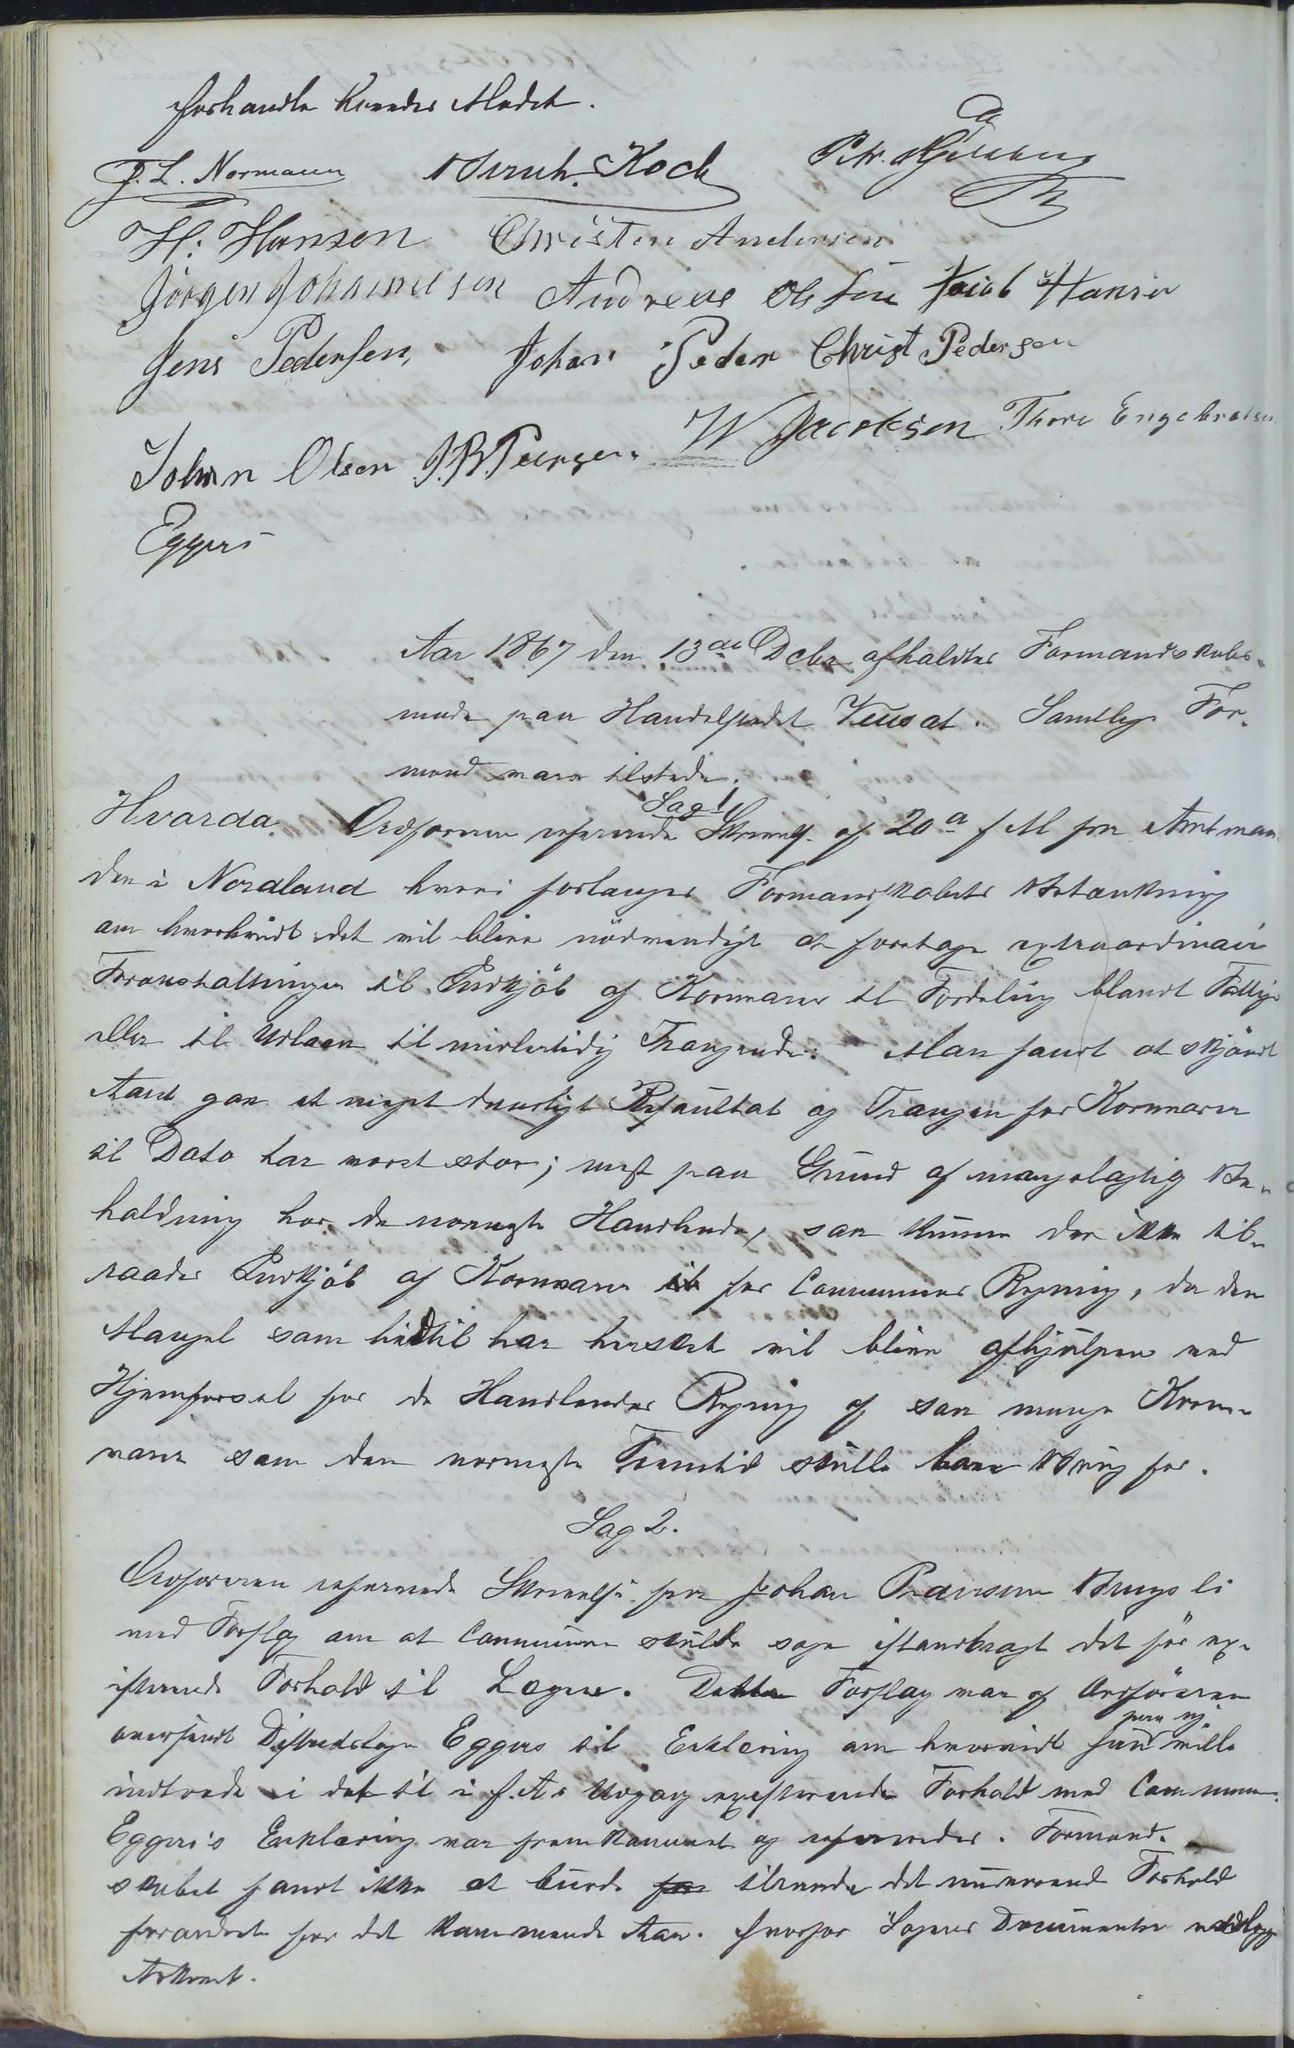 forhandle hævedes Mødet.
J. L. Normann Bernh. Koch Petr.
H. Hansen Christen Andersen
Jørgen Johannessen Andreas Olsen Jacob Hansen
Jens Pedersen, Johan Peder Christ Pedersen
W Jacobsen Thore Engebretsen
Johan Olsen J. B.
Eggers
Aar 1867 den 13de Dcbr afholdtes Formandskabs-
møde paa Handelstedet Viisat. Samtlige For-
mænd vare tilstede.
Sag 1
Hvorda Ordføreren refererede Skrivelse af 20de f M fra Amtman
den i Nordland hvori forlanges Formandskabets Betænkning
om hvorvidt det vil blive nödvendigt at foretage extraordinair
Foranstaltninger til Indkjöb af Kornvarer til Fordeling blandt Fattige
eller til Udlaan til midlertidig Trængende. Man fandt at skjöndt
Aaret gav et meget daarligt Resultat og Trangen for Kornvarer
til Dato har været stor; mest paa Grund af mangelagtig Be-
holdning hos de nærmeste Handlende, saa kunne der ikke til-
raades Indkjöb af Kornvarer til for Communens Regning, da den
Mangel som hidtil har hersket vil blive afhjulpen ved
Hjemförsel for de Handlendes Regning af saa mange Korn-
varer som den nærmeste Fremtid skulle have Brug for.
Sag 2.
Ordföreren refererede Skrivelse fra Johan
med Forslag om at Communen skulde söge istandbragt det för ex-
isterende Forhold til Lægen. Dette Forslag var af Ordföreren
oversendt Distrektslæge Eggers til Erklæring om hvorvidt han paa ny vilde
indtræde i det til i f. A.s Udgang existerende Forhold med Communen.
Eggers's Erklæring var fremkommet og refereredes. Formand-
skabet fandt ikke at burde for tilraade det nuværende Forhold
forandret for det kommende Aar. hvorfor Sagens Documenter
Arkivet.